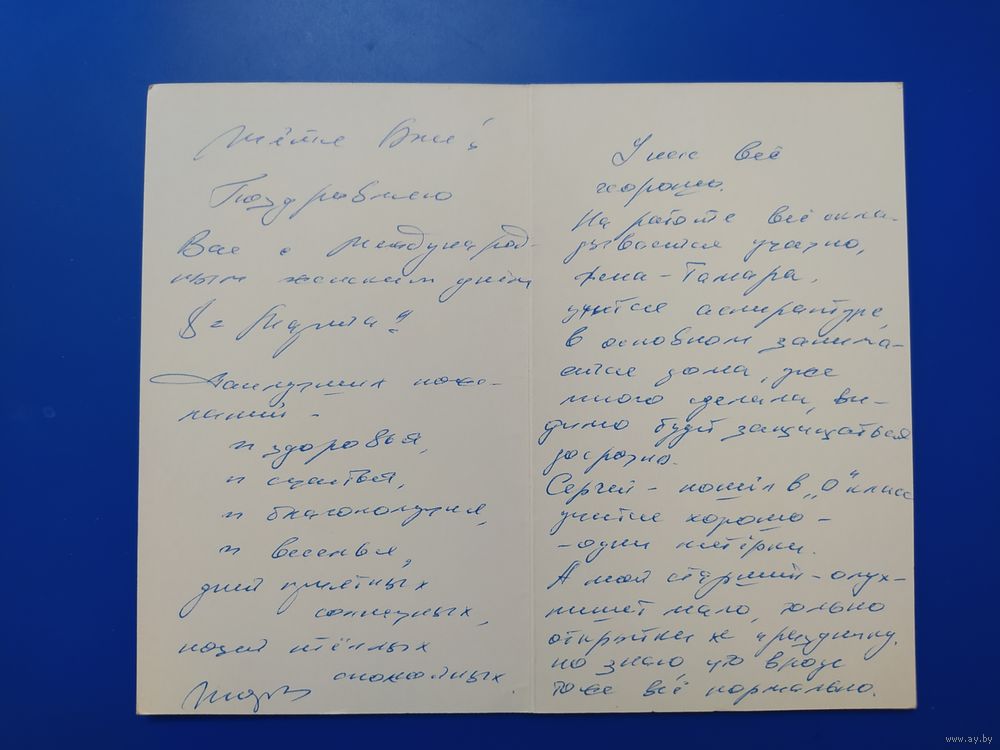 Тётя Аня!
Поздравляю
Вас с Международ-
ным женским днём
8е Марта!!
Наилучших поже-
ланий -
и здоровья,
и счастья,
и благополучия,
и веселья,
дней приятных
солнечных,
ночей тёплых
спокойных
У нас всё
хорошо.
На работе всё скла-
дывается удачно,
жена - Тамара,
учится аспирантуре,
в основном занима-
ется дома, уже
много сделала, ви-
димо будет защищаться
досрочно.
Сергей - пошёл в „0" класс
учится хорошо -
- одни пятёрки.
А мой старший - олух -
пишет мало, только
открытки к празднику.
но знаю, что вроде
тоже всё нормально.
www.ay.by